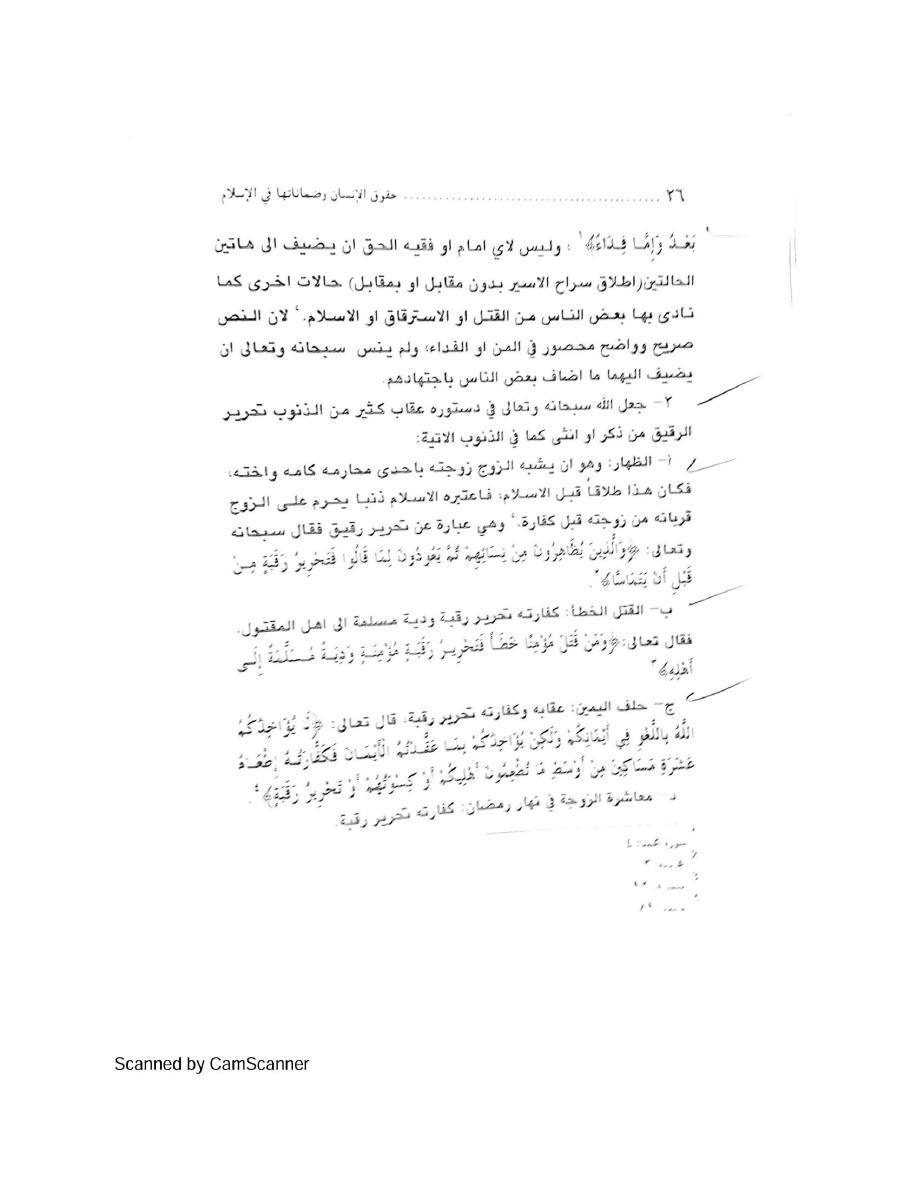 ٢٦ ............................................ حقوق الإنسان وضماناتها في الإسلام
بَعْدُ وَإِمَّا فِدَاءً﴾١ ، وليس لاي امام او فقيه الحق ان يضيف الى هاتين
الحالتين(اطلاق سراح الاسير بدون مقابل او بمقابل) حالات اخرى كما
نادى بها بعض الناس من القتل او الاسترقاق او الاسلام. لان النص
صريح وواضح محصور في المن او الفداء، ولم ينس سبحانه وتعالى ان
يضيف اليهما ما اضاف بعض الناس باجتهادهم.
٢- جعل الله سبحانه وتعالى في دستوره عقاب كثير من الذنوب تحرير
الرقيق من ذكر او انثى كما في الذنوب الاتية:
أ- الظهار: وهو ان يشبه الزوج زوجته باحدى محارمه كامه واخته،
فكان هذا طلاقاً قبل الاسلام، فاعتبره الاسلام ذنبا يحرم على الزوج
قربانه من زوجته قبل كفارة. وهي عبارة عن تحرير رقيق فقال سبحانه
وتعالى: ﴿وَالَّذِينَ يُظَاهِرُونَ مِنْ نِسَائِهِمْ ثُمَّ يَعُودُونَ لِمَا قَالُوا فَتَحْرِيرُ رَقَبَةٍ مِنْ
قَبْلِ أَنْ يَتَمَاسَّا﴾٢.
ب- القتل الخطأ: كفارته تحرير رقبة ودية مسلمة الى اهل المقتول،
فقال تعالى:﴿وَمَنْ قَتَلَ مُؤْمِنًا خَطَأً فَتَحْرِيرُ رَقَبَةٍ مُؤْمِنَةٍ وَدِيَةٌ مُسَلَّمَةٌ إِلَى
أَهْلِهِ﴾٣
ج- حلف اليمين: عقابه وكفارته تحرير رقبة، قال تعالى: ﴿لَا يُؤَاخِذُكُمُ
اللَّهُ بِاللَّغْوِ فِي أَيْمَانِكُمْ وَلَكِنْ يُؤَاخِذُكُمْ بِمَا عَقَّدْتُمُ الْأَيْمَانَ فَكَفَّارَتُهُ إِطْعَامُ
عَشَرَةِ مَسَاكِينَ مِنْ أَوْسَطِ مَا تُطْعِمُونَ أَهْلِيكُمْ أَوْ كِسْوَتُهُمْ أَوْ تَحْرِيرُ رَقَبَةٍ﴾٤.
د- معاشرة الزوجة في نهار رمضان: كفارته تحرير رقبة.
سورة محمد: ٤
Scanned by CamScanner